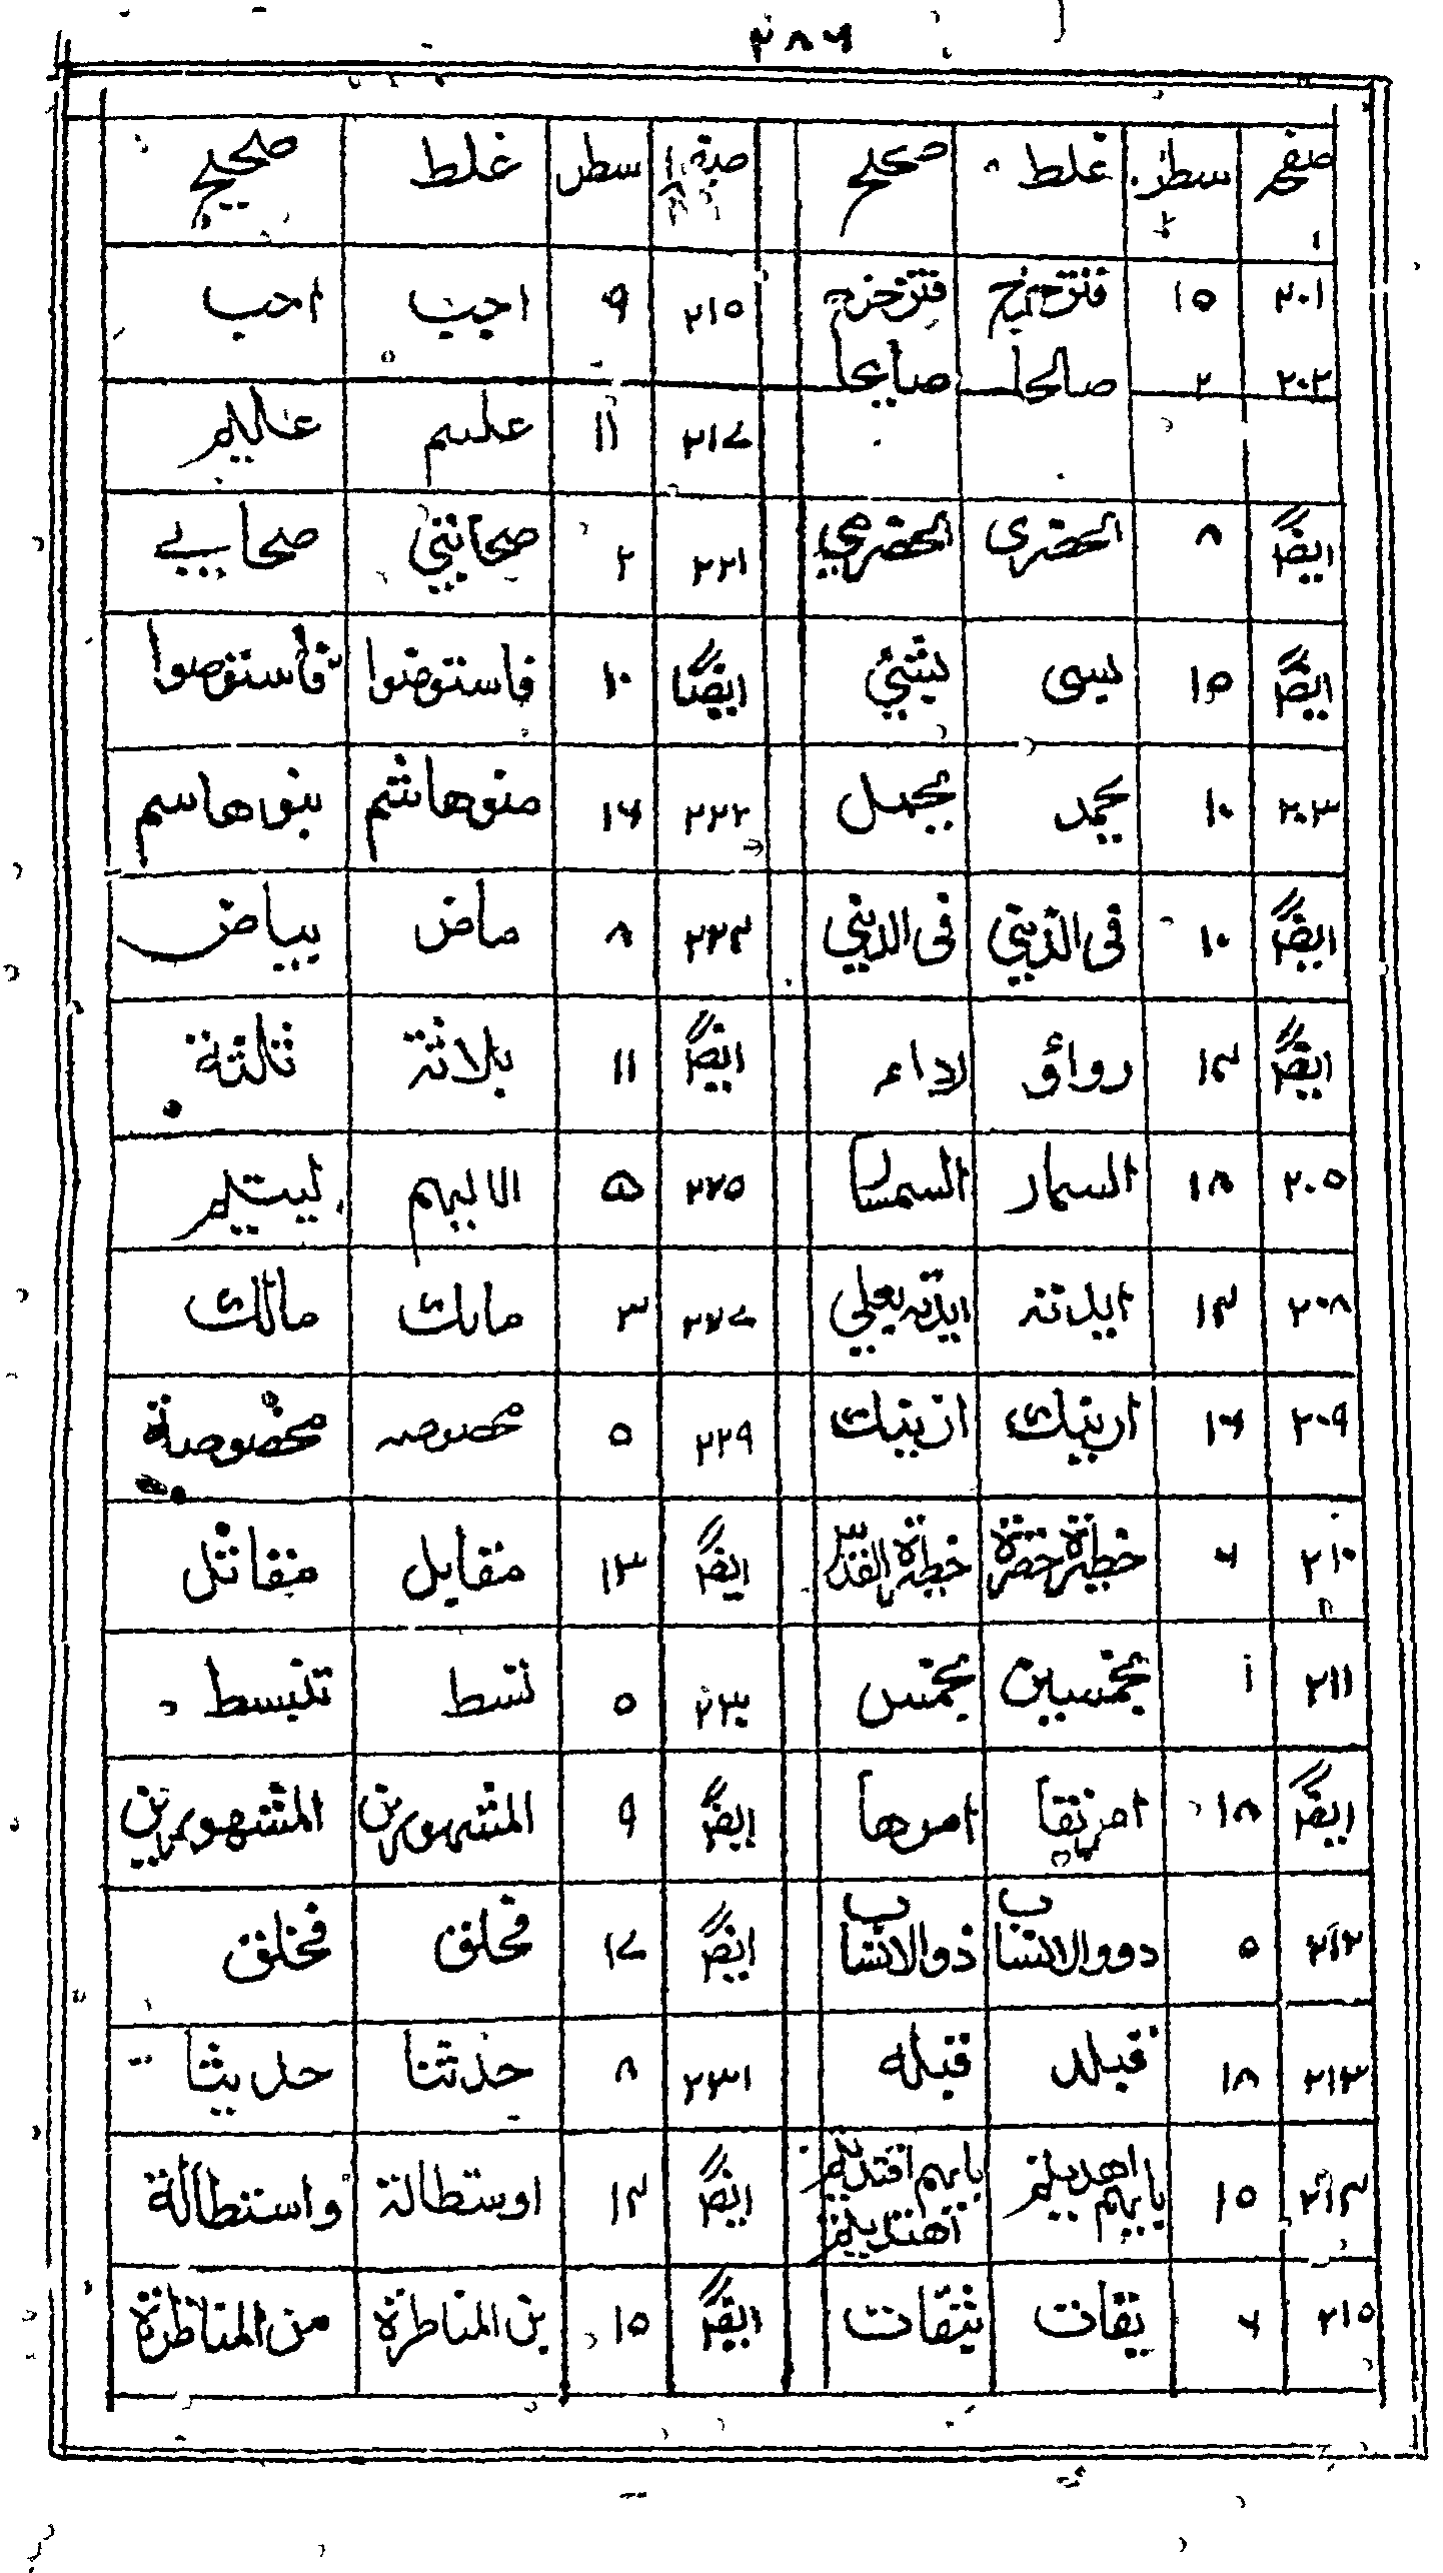 ٢٨٦
صفحہ سطر غلط صحیح صفحہ سطر غلط صحیح
٢٠١ ١٥ ٢١٥ ٩ اجيب احب
٢٠٢ ٢ صالحا صايحا
٢١٧ ١١ علسم عاليم
ايضاً ٨ الحضرى الحضرمي ٢٢١ ٢ صحانني صحابي
ايضاً ١٥ يسى يثني ايضاً ١٠ فاستوضوا
٢٠٣ ١٠ يحمد يجهل ٢٢٢ ١٦ منوهاشم بنوهاسم
ايضاً ١٠ فى الذيني فى الديني ٢٢٤ ٨ ماض بياض
ايضاً ١٤ رواؤ رداء ايضاً ١١ بلاثة ثالثة
٢٠٥ ١٨ السمار السمسار ٢٢٥ ٥ الاليهم ليتيلم
٢٠٨ ١٤ ايدته ايدته يعلي ٢٢٧ ٣ مابك مالك
٢٠٩ ١٦ اربنيك ازينيك ٢٢٩ ٥ مخصوصه مخصوصة
٢١٠ ٦ خطيرة حضرة خطيرة القدس ايضاً ١٣ مقابل مقاتل
٢١١ ١ بخمسين بخمس ٢٣٠ ٥ نشط تنبسط
ايضاً ١٨ امرها ايضاً ٩ المشهورين المشهورين
٢١٢ ٥ دووالانساب ذوالانساب ايضاً ١٧ فحلق فخلق
٢١٣ ١٨ قبلد قبله ٢٣١ ٨ حدثنا حديثا
٢١٤ ١٥ بايهم اهديلم بايهم اقتديلم اهتديلم ايضاً ١٤ اوستطالة واستطالة
٢١٥ ٦ يقات ثقات ايضاً ١٥ بن المناطرة من المناظرة